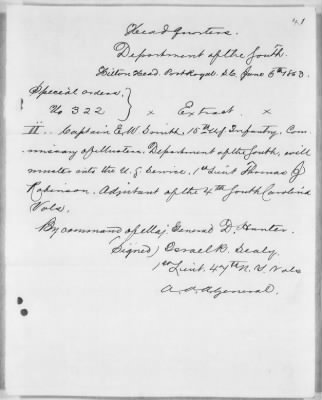 41
Head Quarters.
Department of the South.
Hilton Head. Port Royal. S.C. June 5th 1863.
Special orders.
No 322 } x Extract. x
II. Captain E. W. Smith, 15th U.S. Infantry. Com-
missary of Musters. Department of the South, will
muster into the U.S. Service. 1st Lieut Thomas J
Robinson. Adjutant of the 4th South Carolina
Vols.
By command of Maj. General D. Hunter.
(Signed) Israel R. Sealy.
1st Lieut. 47th N.Y. Vols
A.A.A. General.